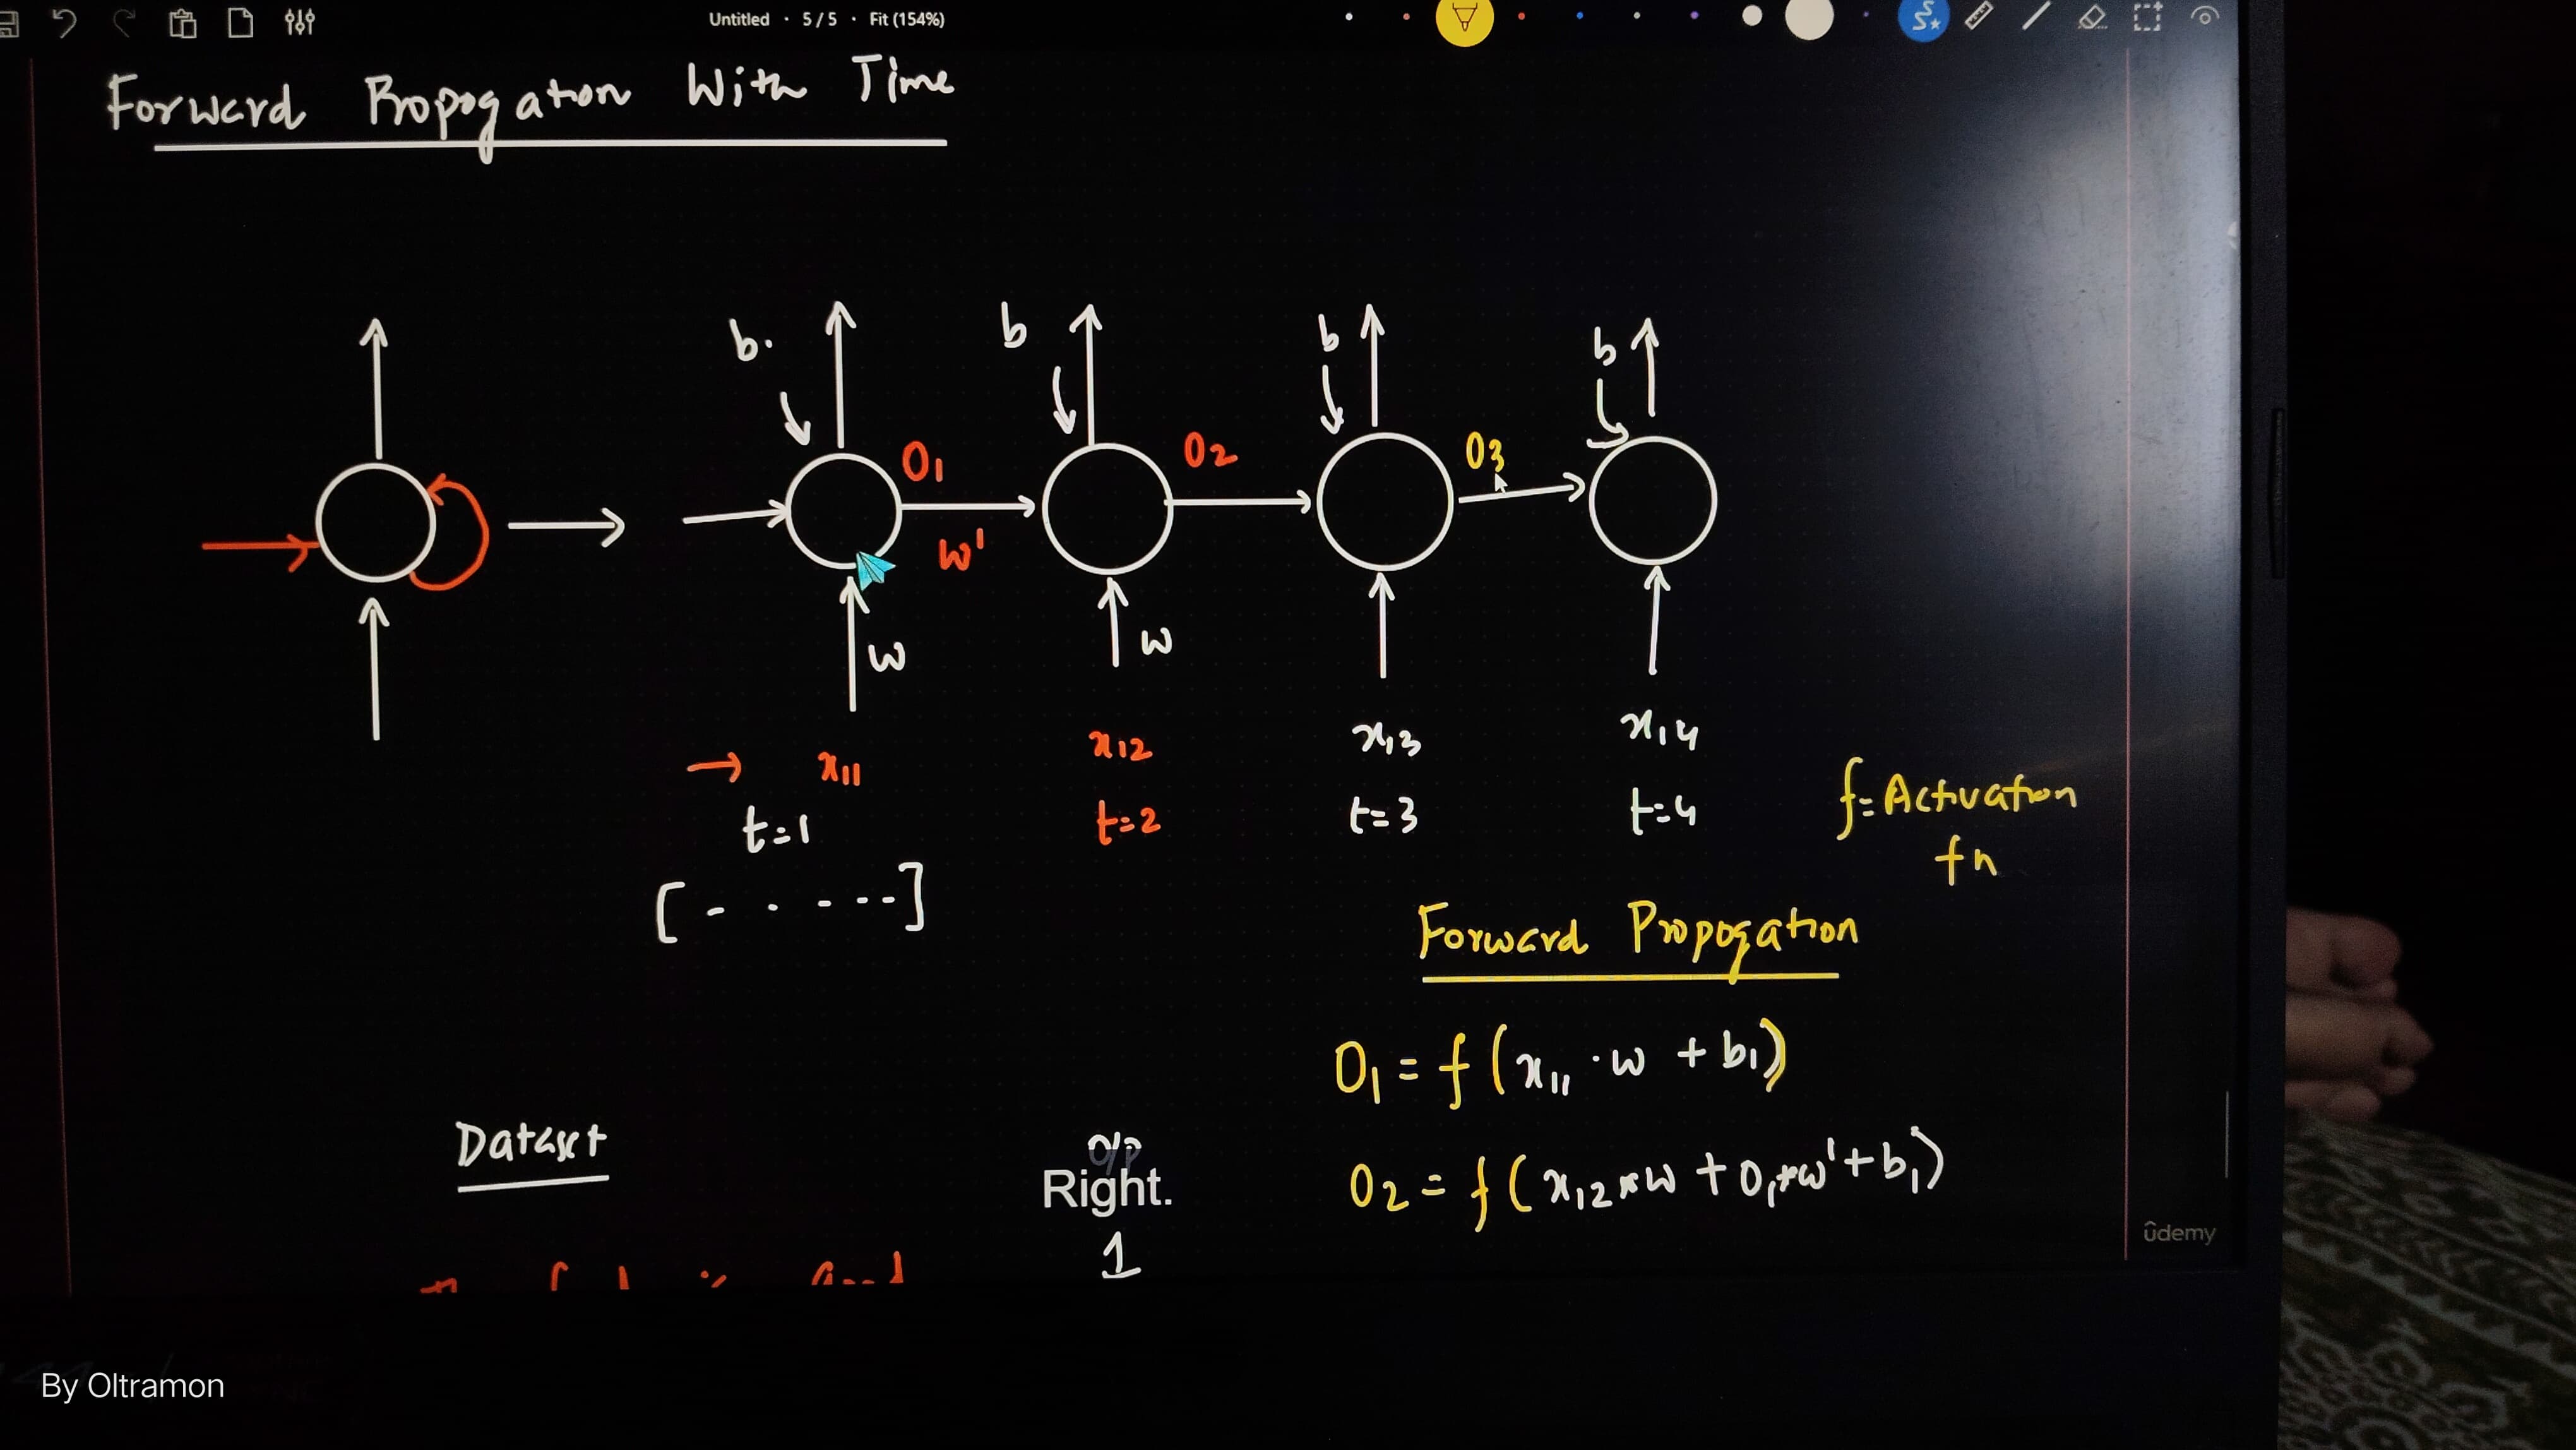 Untitled · 5 / 5 · Fit (154%)
Forward Propogation With Time
b. b b b
O1 O2 O3
w'
w w
x11 x12 x13 x14
t=1 t=2 t=3 t=4
[- · - --]
f= Activation
fn
Forward Propogation
O1 = f (x11 · w + b1)
O2 = f ( x12 * w + O1 * w' + b1)
Dataset
o/p
Right.
1
ûdemy
By Oltramon